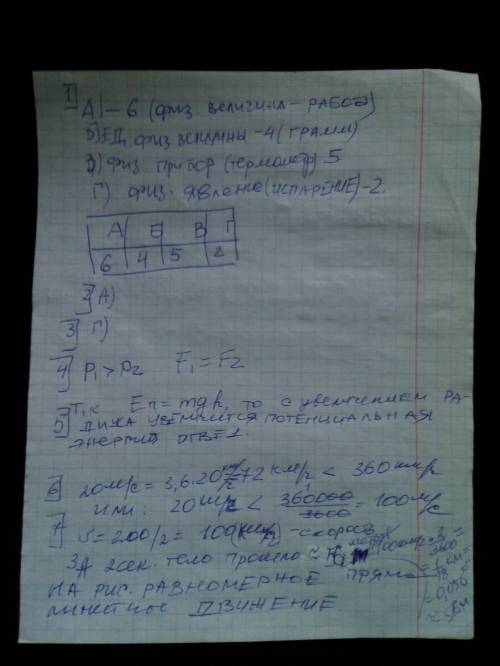 1 А) – 6 (физ. величина – работа)
Б) ед. физ величины – 4 (грамм)
В) физ прибор (термометр) 5
Г) физ. явление (испарение) – 2.
А Б В Г
6 4 5 2
2 А)
3 Г)
4 P₁ > P₂ F₁ = F₂
Т.к Eп = mgh, то с увеличением ра-
5 диуса увеличится потенциальная
энергия ответ 1
6 20 м/с = 3,6·20 км/г = 72 км/г < 360 км/г
или: 20 < 360000/3600 = 100 м/с
7 υ = 200/2 = 100 – скорость
За 2 сек. тело прошло ≈
на рис. равномерное прямо-
линейное движение